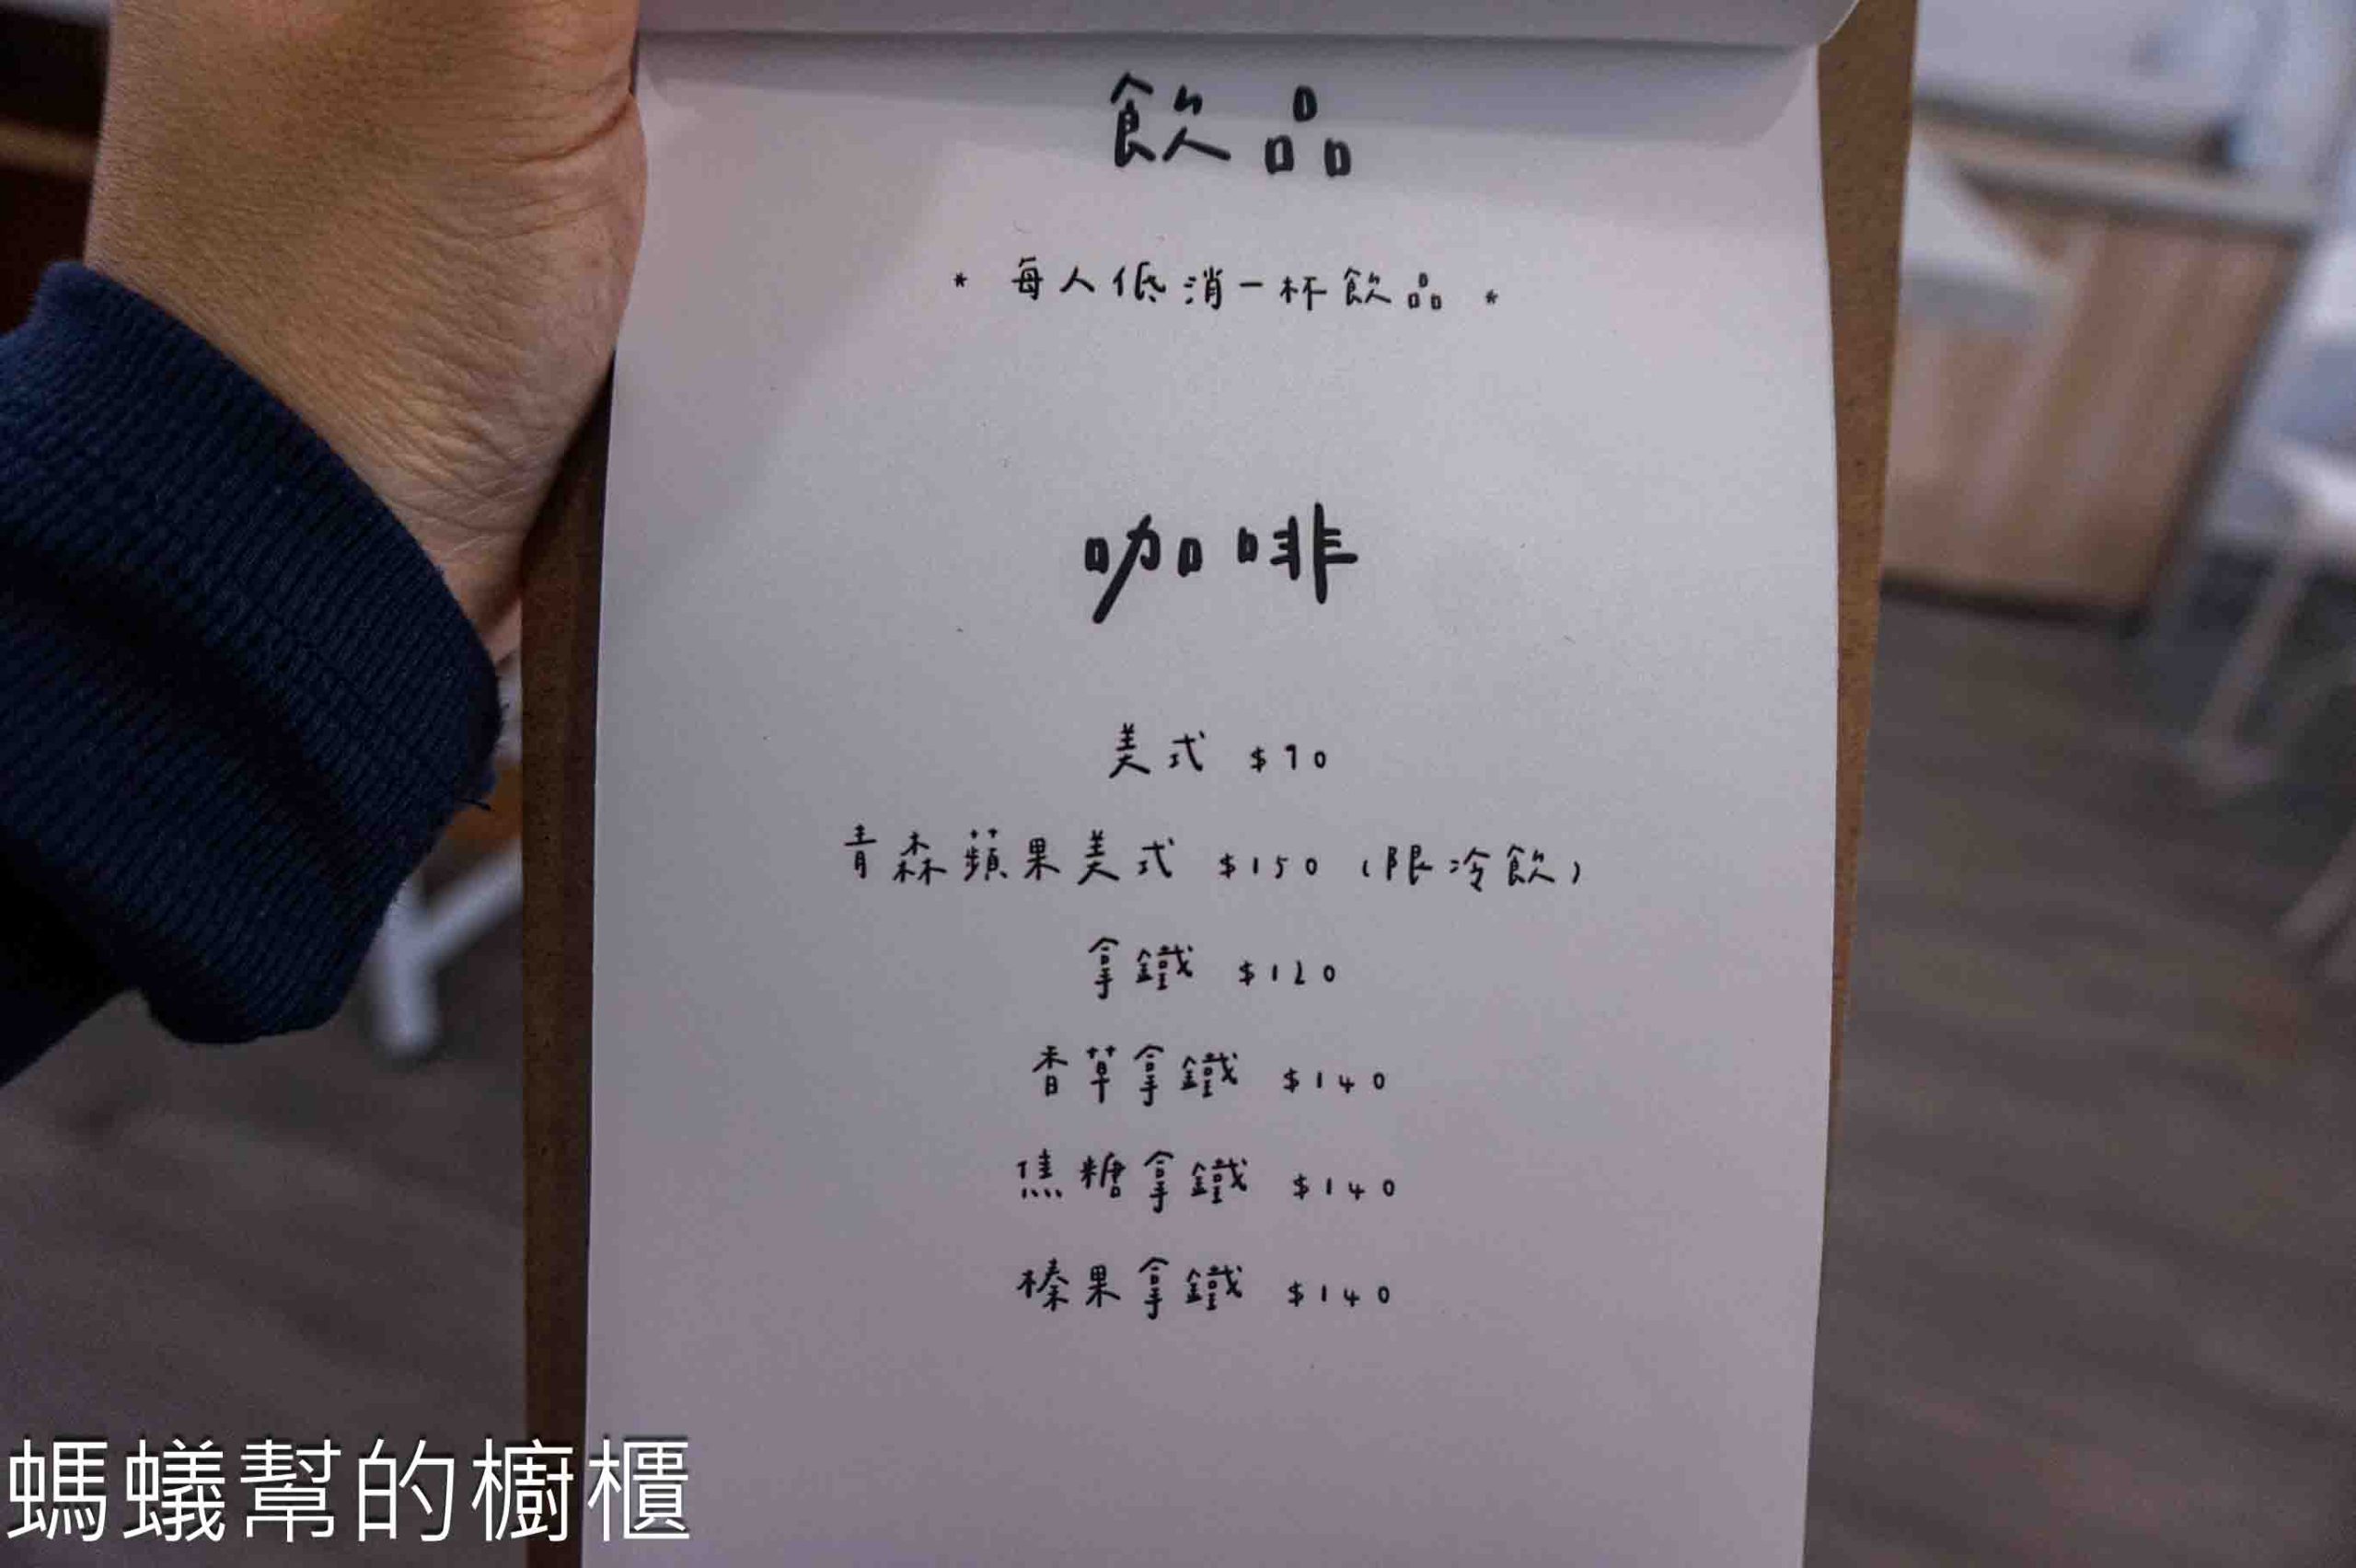 飲品
* 每人低消一杯飲品 *
咖啡
美式 $90
青森蘋果美式 $150 (限冷飲)
拿鐵 $120
香草拿鐵 $140
焦糖拿鐵 $140
榛果拿鐵 $140
螞蟻幫的櫥櫃